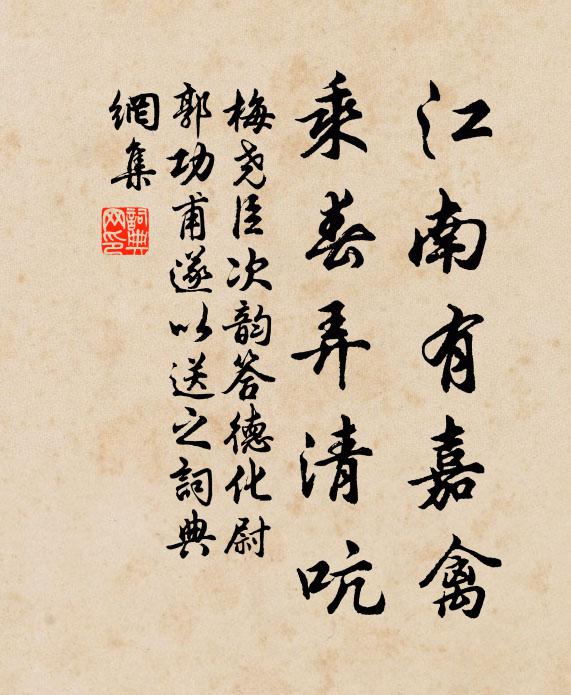 江南有嘉禽
乘春弄清吭
梅尧臣次韵答德化尉
郭功甫遂以送之詞典
網集
詞典网印